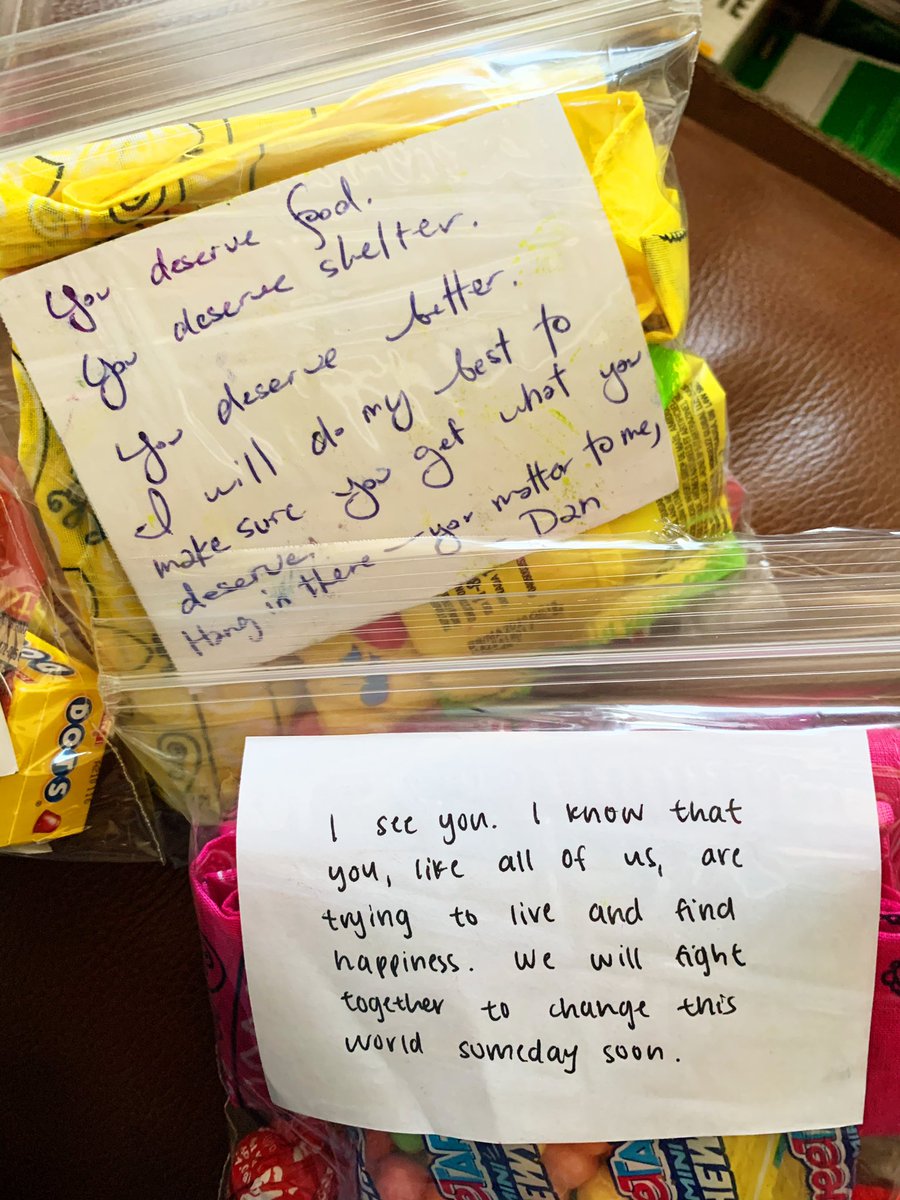 You deserve food.
You deserve shelter.
You deserve better.
I will do my best to
make sure you get what you
deserve!
Hang in there — you matter to me,
- Dan
DOTS
I see you. I know that
you, like all of us, are
trying to live and find
happiness. We will fight
together to change this
world someday soon.
MINI
MINI